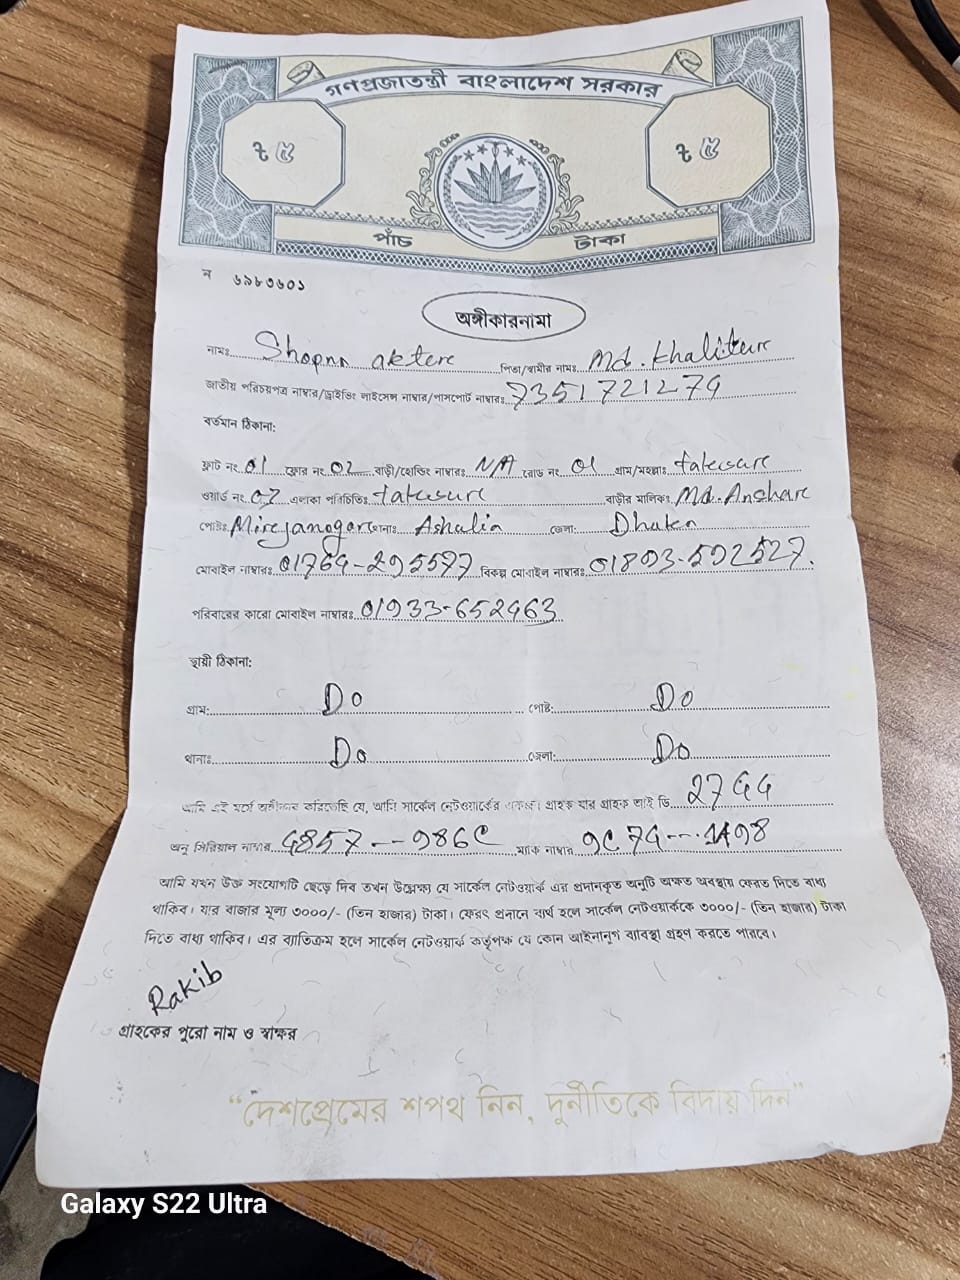 গণপ্রজাতন্ত্রী বাংলাদেশ সরকার
৳ ৫ ৳ ৫
পাঁচ টাকা
ন ৬৯৮৩৬০১
অঙ্গীকারনামা
নামঃ Shopnn aktere পিতা/স্বামীর নামঃ Md. Khaliture
জাতীয় পরিচয়পত্র নাম্বার/ড্রাইভিং লাইসেন্স নাম্বার/পাসপোর্ট নাম্বারঃ 7351721279
বর্তমান ঠিকানা:
ফ্লাট নং 01 ফ্লোর নং 02 বাড়ী/হোল্ডিং নাম্বারঃ N/A রোড নং 01 গ্রাম/মহল্লাঃ
ওয়ার্ড নং 07 এলাকা পরিচিতিঃ বাড়ীর মালিকঃ Md. Anshare
পোষ্টঃ থানাঃ Ashulia জেলা: Dhaka
মোবাইল নাম্বারঃ বিকল্প মোবাইল নাম্বারঃ
পরিবারের কারো মোবাইল নাম্বারঃ
স্থায়ী ঠিকানা:
গ্রাম: Do পোষ্ট: Do
থানাঃ Do জেলা: Do
আমি এই মর্মে অঙ্গীকার করিতেছি যে, আমি সার্কেল নেটওয়ার্কের একজন গ্রাহক যার গ্রাহক আই ডি
অনু সিরিয়াল নাম্বার ম্যাক নাম্বার
আমি যখন উক্ত সংযোগটি ছেড়ে দিব তখন উল্লেক্ষ্য যে সার্কেল নেটওয়ার্ক এর প্রদানকৃত অনুটি অক্ষত অবস্থায় ফেরত দিতে বাধ্য
থাকিব। যার বাজার মূল্য ৩০০০/- (তিন হাজার) টাকা। ফেরৎ প্রদানে ব্যর্থ হলে সার্কেল নেটওয়ার্ককে ৩০০০/- (তিন হাজার) টাকা
দিতে বাধ্য থাকিব। এর ব্যাতিক্রম হলে সার্কেল নেটওয়ার্ক কর্তৃপক্ষ যে কোন আইনানুগ ব্যাবস্থা গ্রহণ করতে পারবে।
Rakib
গ্রাহকের পুরো নাম ও স্বাক্ষর
“দেশপ্রেমের শপথ নিন, দুর্নীতিকে বিদায় দিন”
Galaxy S22 Ultra